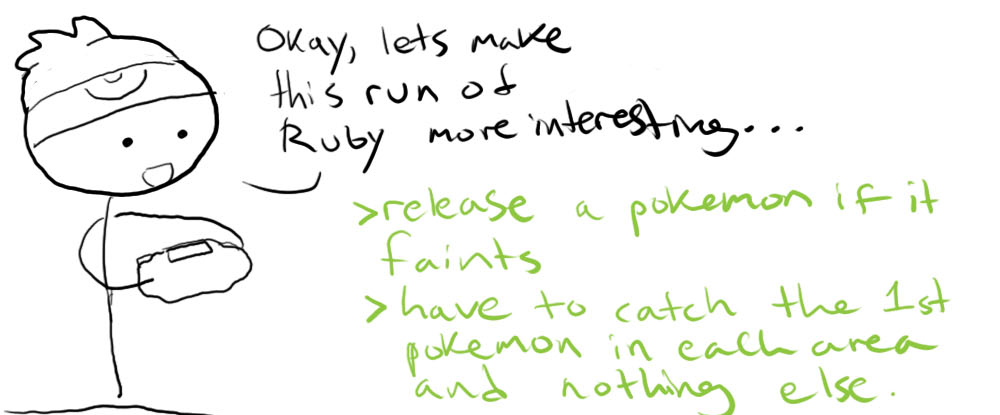 Okay, lets make
this run of
Ruby more interesting...
>release a pokemon if it
faints
>have to catch the 1st
pokemon in each area
and nothing else.